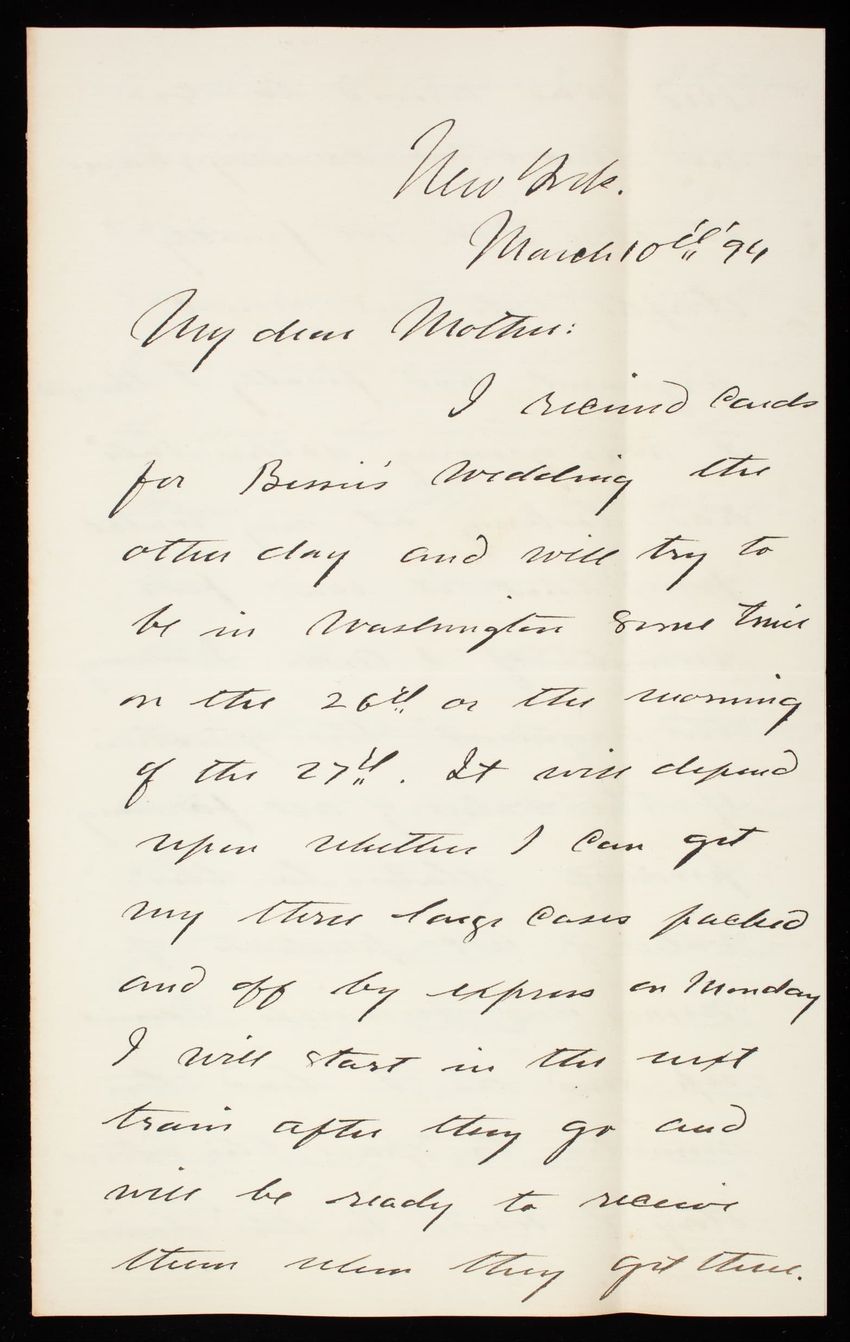 New York.
March 10th '94
My dear Mother:
I received cards
for Bessie's wedding the
other day and will try to
be in Washington some time
on the 26th or the morning
of the 27th. It will depend
upon whether I can get
my three large cases packed
and off by express on Monday
I will start in the next
train after they go and
will be ready to receive
them when they get there.